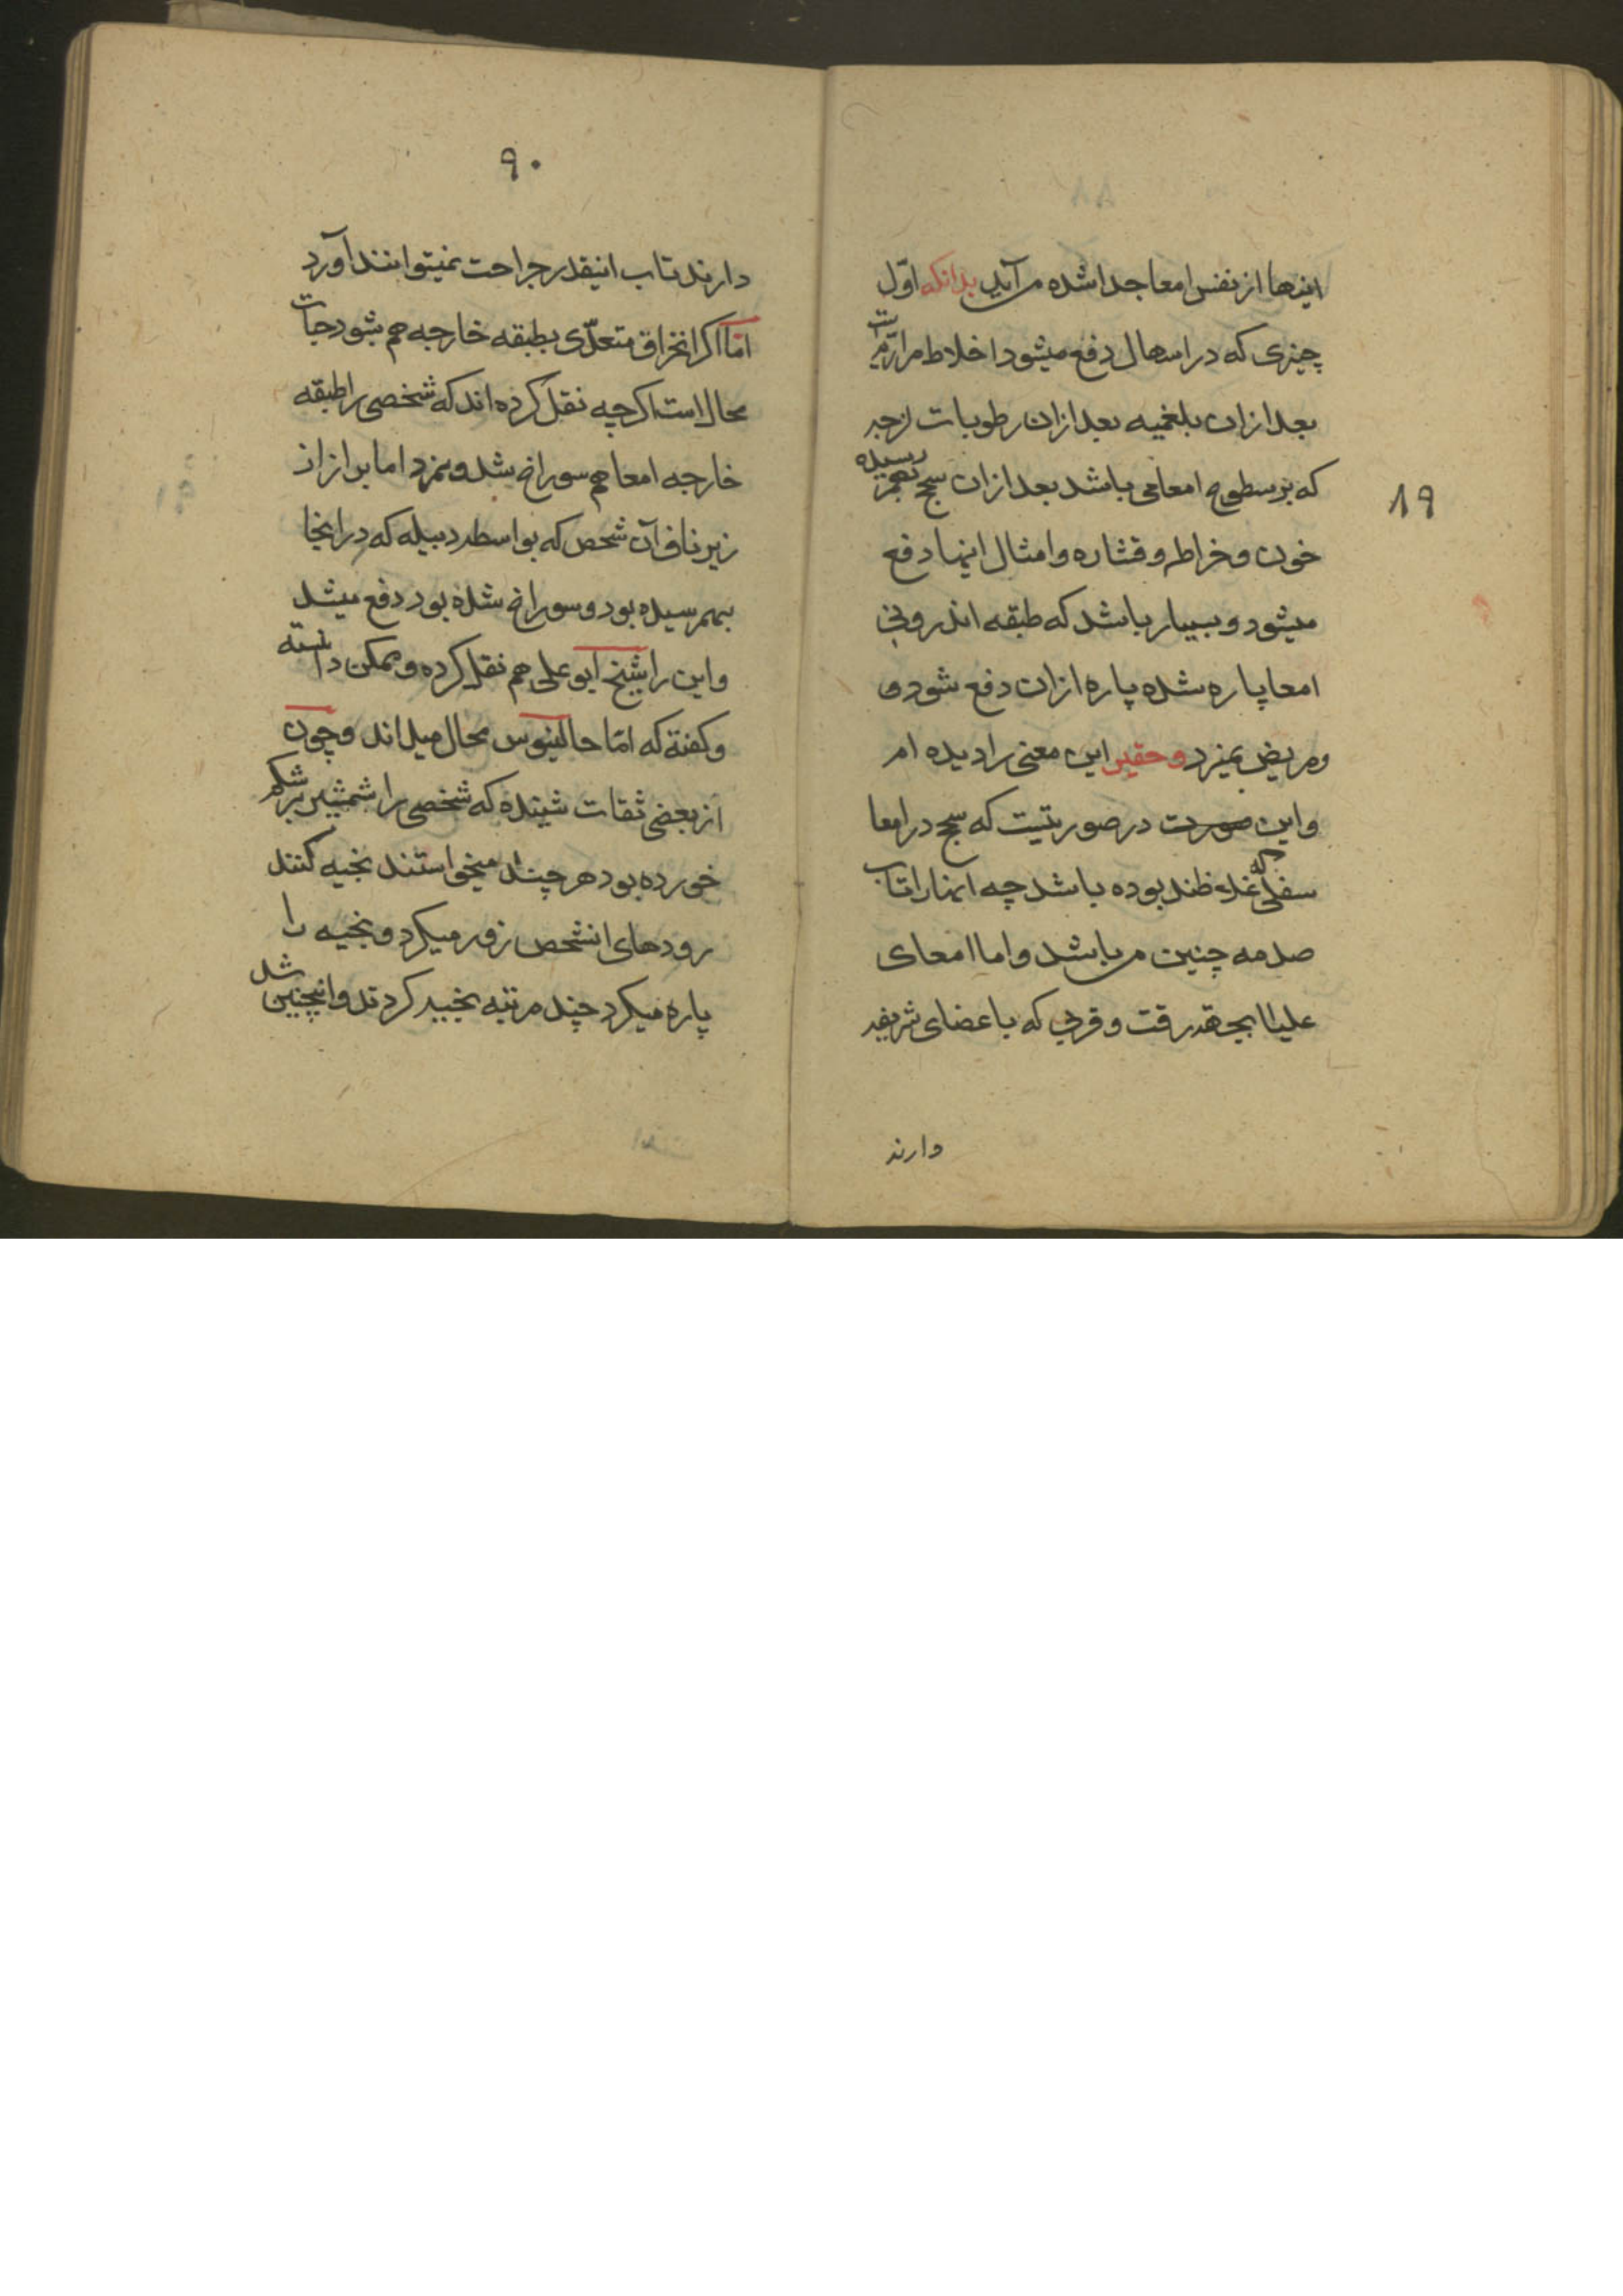 اینها از نفس امعا جدا شده می آید بدانکه اوّل
چیزی که در اسهال دفع میشود اخلاط مراریّ است
بعد ازان بلغمیه بعد ازان رطوبات لزجه
که بر سطوح امعا می باشد بعد ازان سحج بهمرسیده
خون و خراطه و قشاره و امثال اینها دفع
میشود و بسیار باشد که طبقه اندرونی
امعا پاره شده پاره ازان دفع شود و
ومریض نمیرد و حقیر این معنی را دیده ام
واین صورت در صورتیست که سحج در امعا
سفلی که غلاظند بوده باشد چه اینها را تاب
صدمه چنین می باشد و اما امعای
علیا بجهة رقت و قربی که با عضای شریفه
دارند
۸۹
۹۰
دارند تاب اینقدر جراحت نمیتوانند آورد
امّا اکر انخراق متعدّی بطبقه خارجه هم شود حیات
محال است اکرچه نقل کرده اند که شخصی را طبقه
خارجه امعا هم سوراخ شد و نمرد اما براز از
زیر ناف آن شخص که بواسطه دبیله که در اینجا
بهمرسیده بود و سوراخ شده بود دفع میشد
واین را شیخ ابو علی هم نقل کرده و ممکن دانسته
و کفته که امّا جالینوس محال میداند و چون
از بعضی ثقات شنیده که شخصی را شمشیر بر شکم
خورده بود هر چند میخواستند بخیه کنند
رودهای انشخص زور میکرد و بخیه را
پاره میکرد چند مرتبه بخیه کردند و اینچنین شد